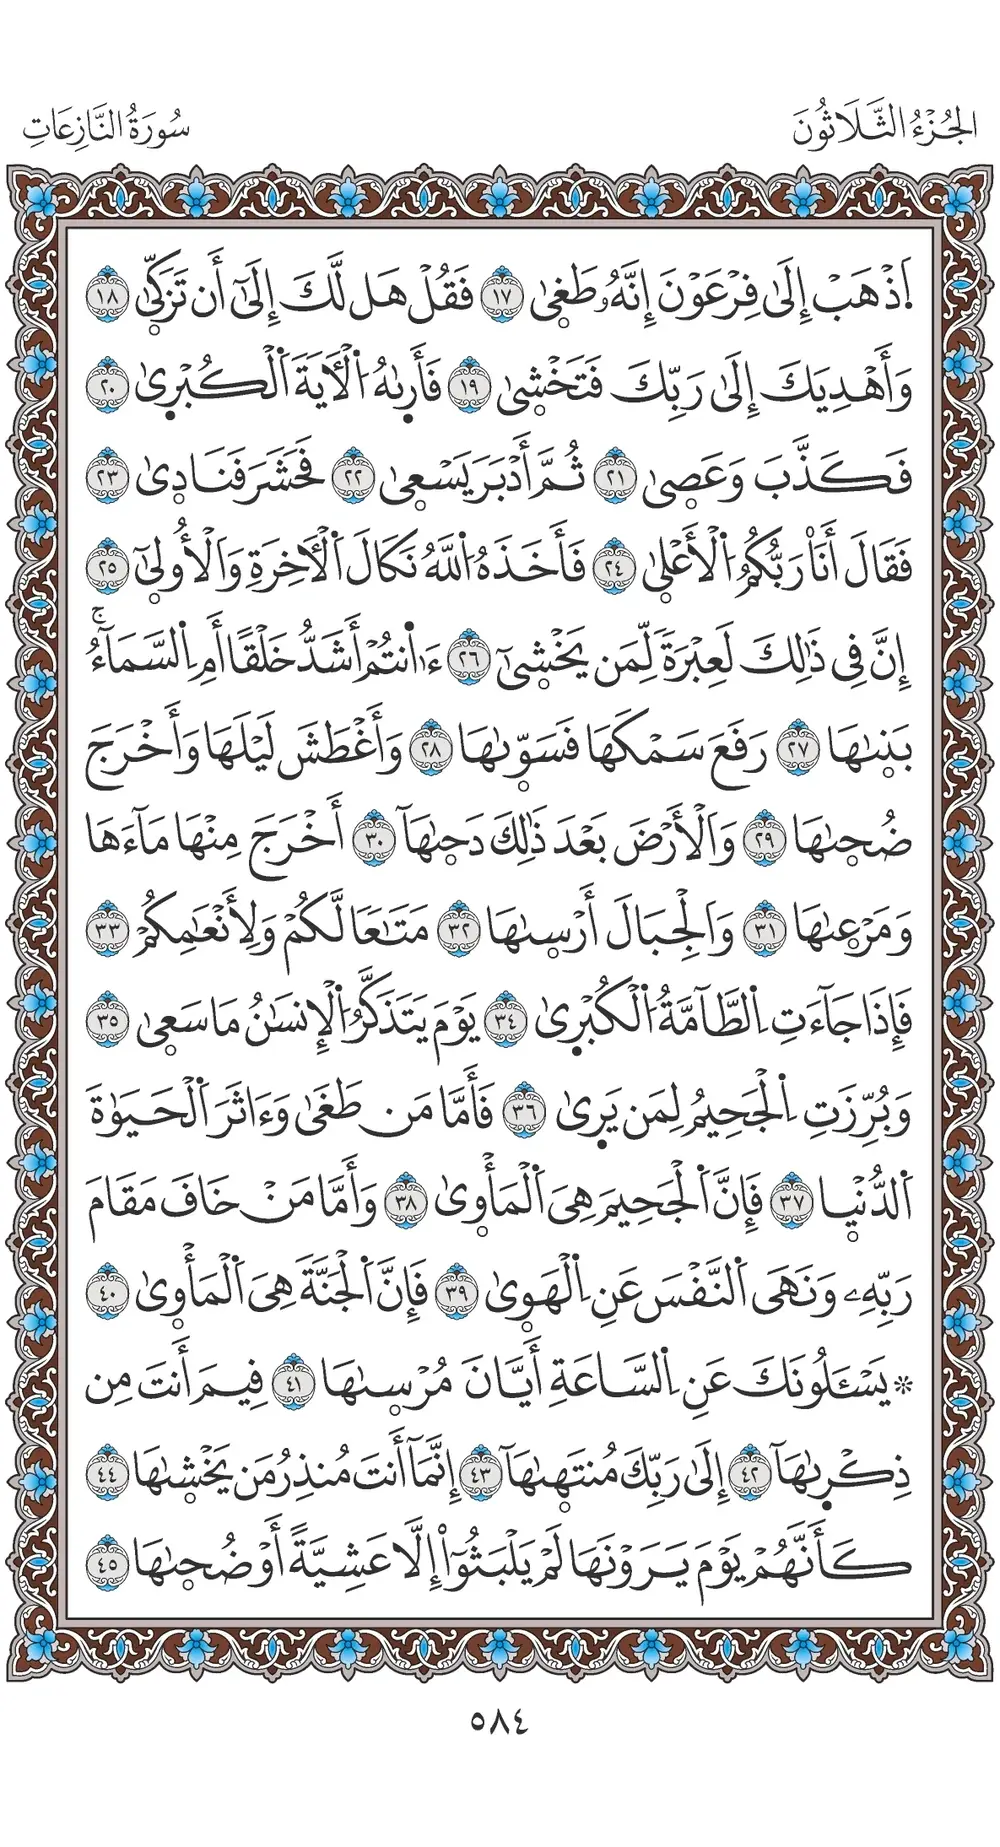 الجُزْءُ الثَّلَاثُونَ
سُورَةُ النَّازِعَاتِ
اَ۪ذْهَبْ إِلَىٰ فِرْعَوْنَ إِنَّهُۥ طَغ۪ىٰ ١٧ فَقُلْ هَل لَّكَ إِلَىٰٓ أَن تَزَّكّ۪ىٰ ١٨
وَأَهْدِيَكَ إِلَىٰ رَبِّكَ فَتَخْش۪ىٰ ١٩ فَأَر۪ىٰهُ اُ۬لْأٓيَةَ اَ۬لْكُبْر۪ىٰ ٢٠
فَكَذَّبَ وَعَص۪ىٰ ٢١ ثُمَّ أَدْبَرَ يَسْع۪ىٰ ٢٢ فَحَشَرَ فَنَاد۪ىٰ ٢٣
فَقَالَ أَنَا۠ رَبُّكُمُ اُ۬لْأَعْل۪ىٰ ٢٤ فَأَخَذَهُ اُ۬للَّهُ نَكَالَ اَ۬لْأٓخِرَةِ وَالْأُول۪ىٰٓ ٢٥
إِنَّ فِى ذَٰلِكَ لَعِبْرَةً لِّمَن يَخْش۪ىٰٓ ٢٦ ءَا۬نتُمْ أَشَدُّ خَلْقًا أَمِ اِ۬لسَّمَآءُۚ
بَن۪ىٰهَا ٢٧ رَفَعَ سَمْكَهَا فَسَوّ۪ىٰهَا ٢٨ وَأَغْطَشَ لَيْلَهَا وَأَخْرَجَ
ضُح۪ىٰهَا ٢٩ وَالْأَرْضَ بَعْدَ ذَٰلِكَ دَح۪ىٰهَآ ٣٠ أَخْرَجَ مِنْهَا مَآءَهَا
وَمَرْع۪ىٰهَا ٣١ وَالْجِبَالَ أَرْس۪ىٰهَا ٣٢ مَتَٰعًا لَّكُمْ وَلِأَنْعَٰمِكُمْ ٣٣
فَإِذَا جَآءَتِ اِ۬لطَّآمَّةُ اُ۬لْكُبْر۪ىٰ ٣٤ يَوْمَ يَتَذَكَّرُ اُ۬لْإِنسَٰنُ مَا سَع۪ىٰ ٣٥
وَبُرِّزَتِ اِ۬لْجَحِيمُ لِمَن يَر۪ىٰ ٣٦ فَأَمَّا مَن طَغَىٰ وَءَاثَرَ اَ۬لْحَيَوٰةَ
اَ۬لدُّنْي۪ا ٣٧ فَإِنَّ اَ۬لْجَحِيمَ هِىَ اَ۬لْمَأْو۪ىٰ ٣٨ وَأَمَّا مَنْ خَافَ مَقَامَ
رَبِّهِۦ وَنَهَى اَ۬لنَّفْسَ عَنِ اِ۬لْهَو۪ىٰ ٣٩ فَإِنَّ اَ۬لْجَنَّةَ هِىَ اَ۬لْمَأْو۪ىٰ ٤٠
۞ يَسْـَٔلُونَكَ عَنِ اِ۬لسَّاعَةِ أَيَّانَ مُرْس۪ىٰهَا ٤١ فِيمَ أَنتَ مِن
ذِكْر۪ىٰهَآ ٤٢ إِلَىٰ رَبِّكَ مُنتَه۪ىٰهَآ ٤٣ إِنَّمَآ أَنتَ مُنذِرُ مَن يَخْش۪ىٰهَا ٤٤
كَأَنَّهُمْ يَوْمَ يَرَوْنَهَا لَمْ يَلْبَثُوٓا۟ إِلَّا عَشِيَّةً أَوْ ضُح۪ىٰهَا ٤٥
٥٨٤